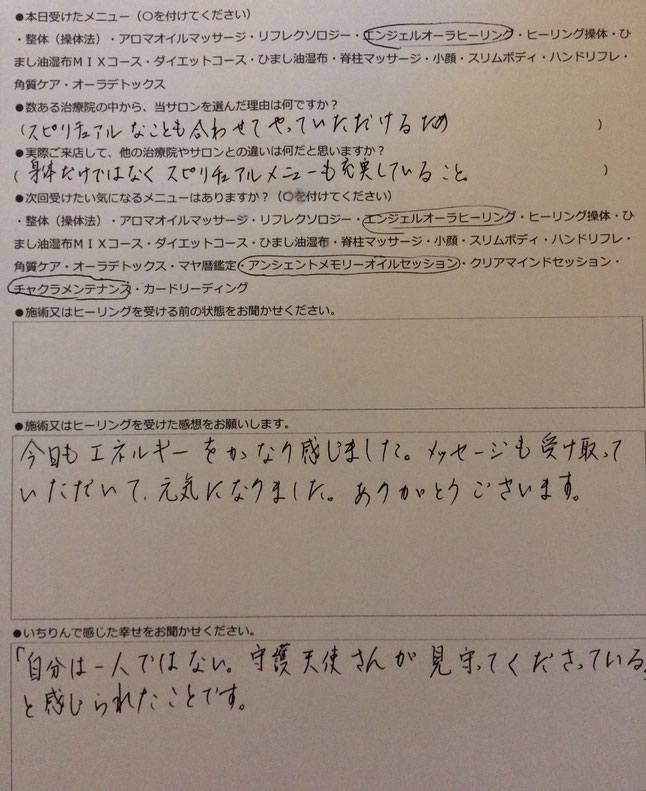 ●本日受けたメニュー（〇を付けてください）
・整体（操体法）・アロマオイルマッサージ・リフレクソロジー・エンジェルオーラヒーリング・ヒーリング操体・ひ
まし油湿布ＭＩＸコース・ダイエットコース・ひまし油湿布・脊柱マッサージ・小顔・スリムボディ・ハンドリフレ・
角質ケア・オーラデトックス
●数ある治療院の中から、当サロンを選んだ理由は何ですか？
（スピリチュアルなことも合わせてやっていただけるため）
●実際ご来店して、他の治療院やサロンとの違いは何だと思いますか？
（身体だけではなくスピリチュアルメニューも充実していること。）
●次回受けたい気になるメニューはありますか？（〇を付けてください）
・整体（操体法）・アロマオイルマッサージ・リフレクソロジー・エンジェルオーラヒーリング・ヒーリング操体・ひ
まし油湿布ＭＩＸコース・ダイエットコース・ひまし油湿布・脊柱マッサージ・小顔・スリムボディ・ハンドリフレ・
角質ケア・オーラデトックス・マヤ暦鑑定・アンシェントメモリーオイルセッション・クリアマインドセッション・
チャクラメンテナンス・カードリーディング
●施術又はヒーリングを受ける前の状態をお聞かせください。
●施術又はヒーリングを受けた感想をお願いします。
今日もエネルギーをかなり感じました。メッセージも受け取って
いただいて、元気になりました。ありがとうございます。
●いちりんで感じた幸せをお聞かせください。
「自分は一人ではない。守護天使さんが見守ってくださっている」
と感じられたことです。